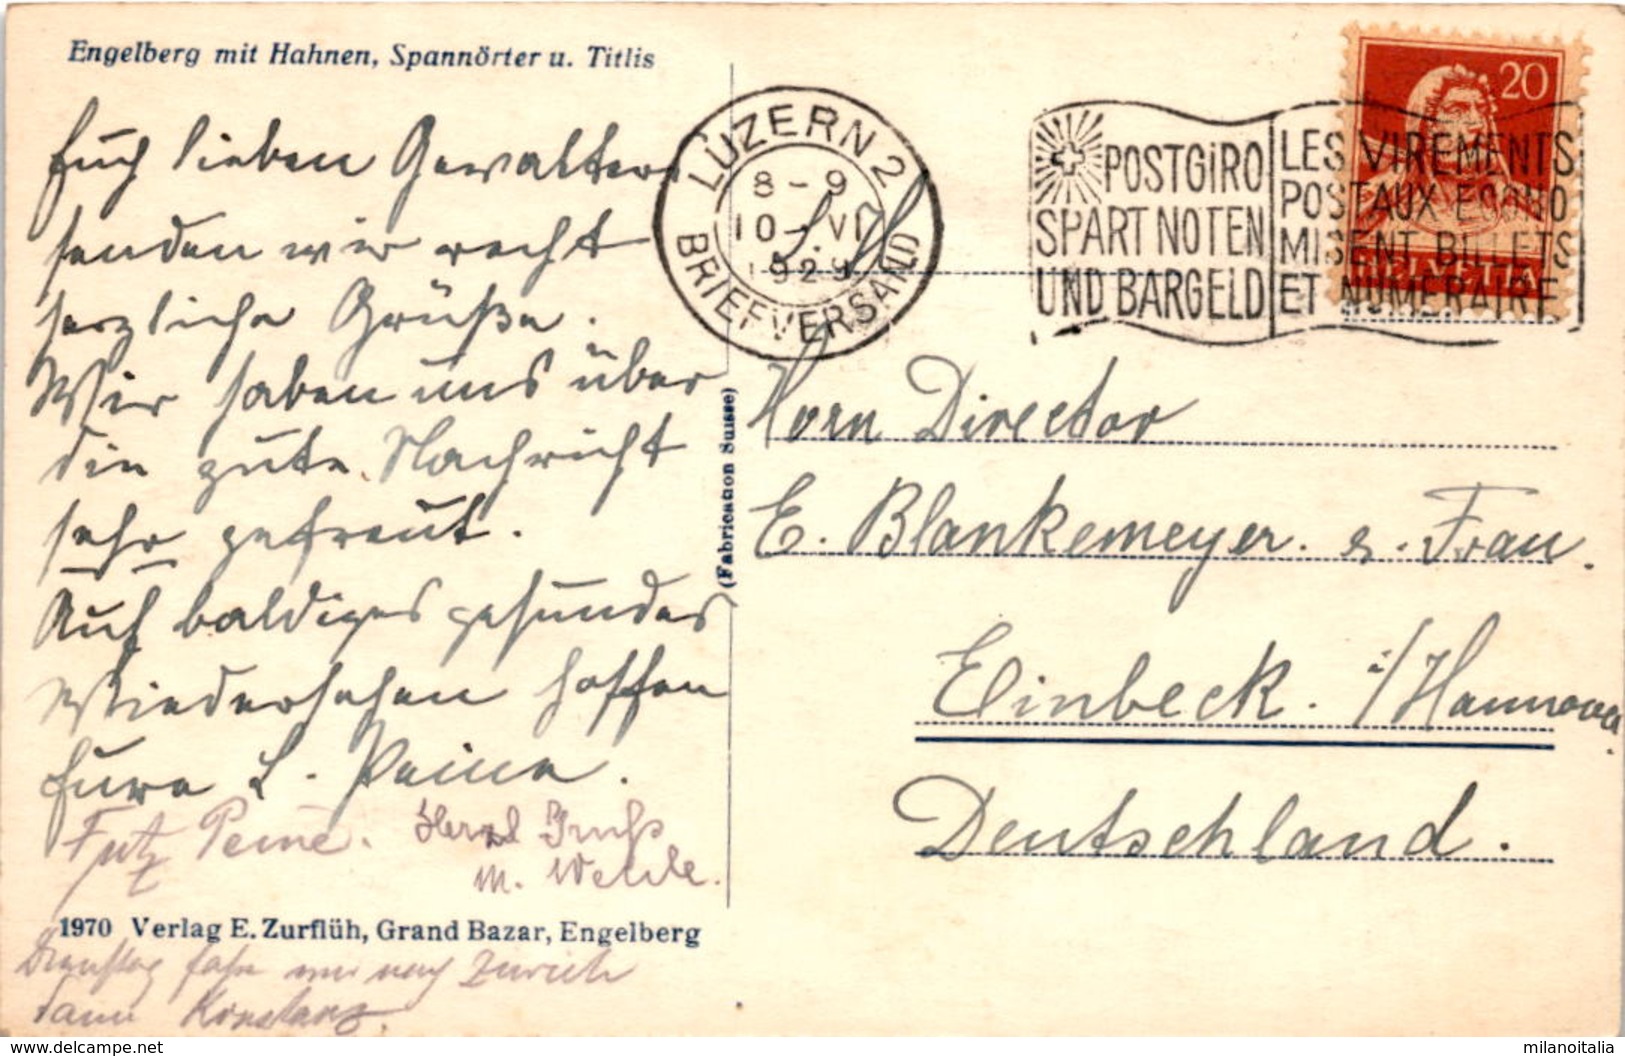 Engelberg mit Hahnen, Spannörter u. Titlis
Euch lieben Gewalters
senden wir recht
herzliche Grüße.
Wir haben uns über
die gute Nachricht
sehr gefreut.
Auf baldiges gesundes
Wiedersehen hoffen
Eure L. Peine.
Fritz Peine. Herzl Gruß
M. Wehde.
1970 Verlag E. Zurflüh, Grand Bazar, Engelberg
Dienstag fahr wir nach Zürich
dann Konstanz.
(Fabrication Suisse)
LUZERN 2
8-9
10.VI
1929
BRIEFVERSAND
POSTGIRO
SPART NOTEN
UND BARGELD
LES VIREMENTS
POSTAUX ECONO
MISENT BILLETS
ET NUMERAIRE
20
HELVETIA
Herrn Director
E. Blankemeyer. u. Frau.
Einbeck. i/Hannover.
Deutschland.
https://www.delcampe.net
milanoitalia